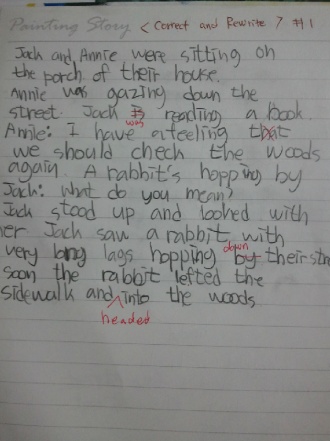 Painting Story < Correct and Rewrite > #1
Jack and Annie were sitting on
the porch of their house.
Annie was gazing down the
street. Jack is was reading a book.
Annie: I have a feeling that
we should check the woods
again. A rabbit's hopping by
Jack: What do you mean?
Jack stood up and looked with
her Jack saw a rabbit with
very long lags hopping by down their str
soon the rabbit lefted the
sidewalk and into the woods
headed